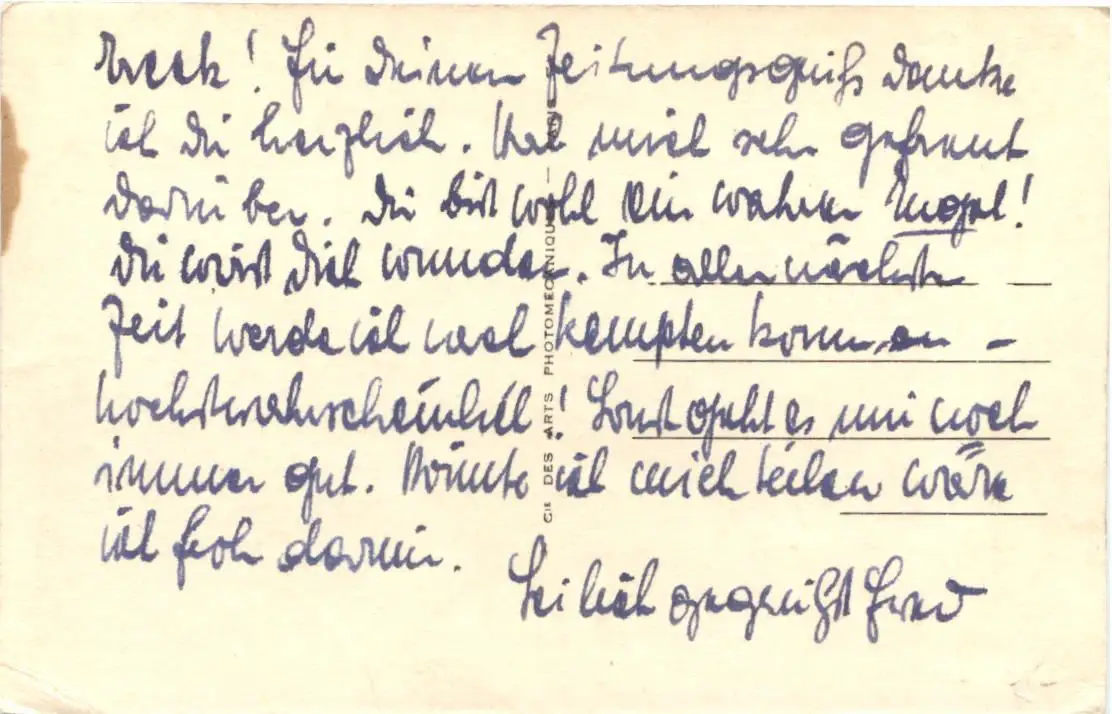 ! Für Deinen Zeitungsgruß danke
ich Dir herzlich. Hat mich sehr gefreut
darüber. Du bist wohl ein wahrer Engel!
Du wirst Dich wundern. In allernächster
Zeit werde ich nach Kempten kommen –
höchstwahrscheinlich! Sonst geht es mir noch
immer gut. Könnte ich mich teilen wäre
ich froh darum.
Sei lieb gegrüßt
CIE DES ARTS PHOTOMÉCANIQUES –